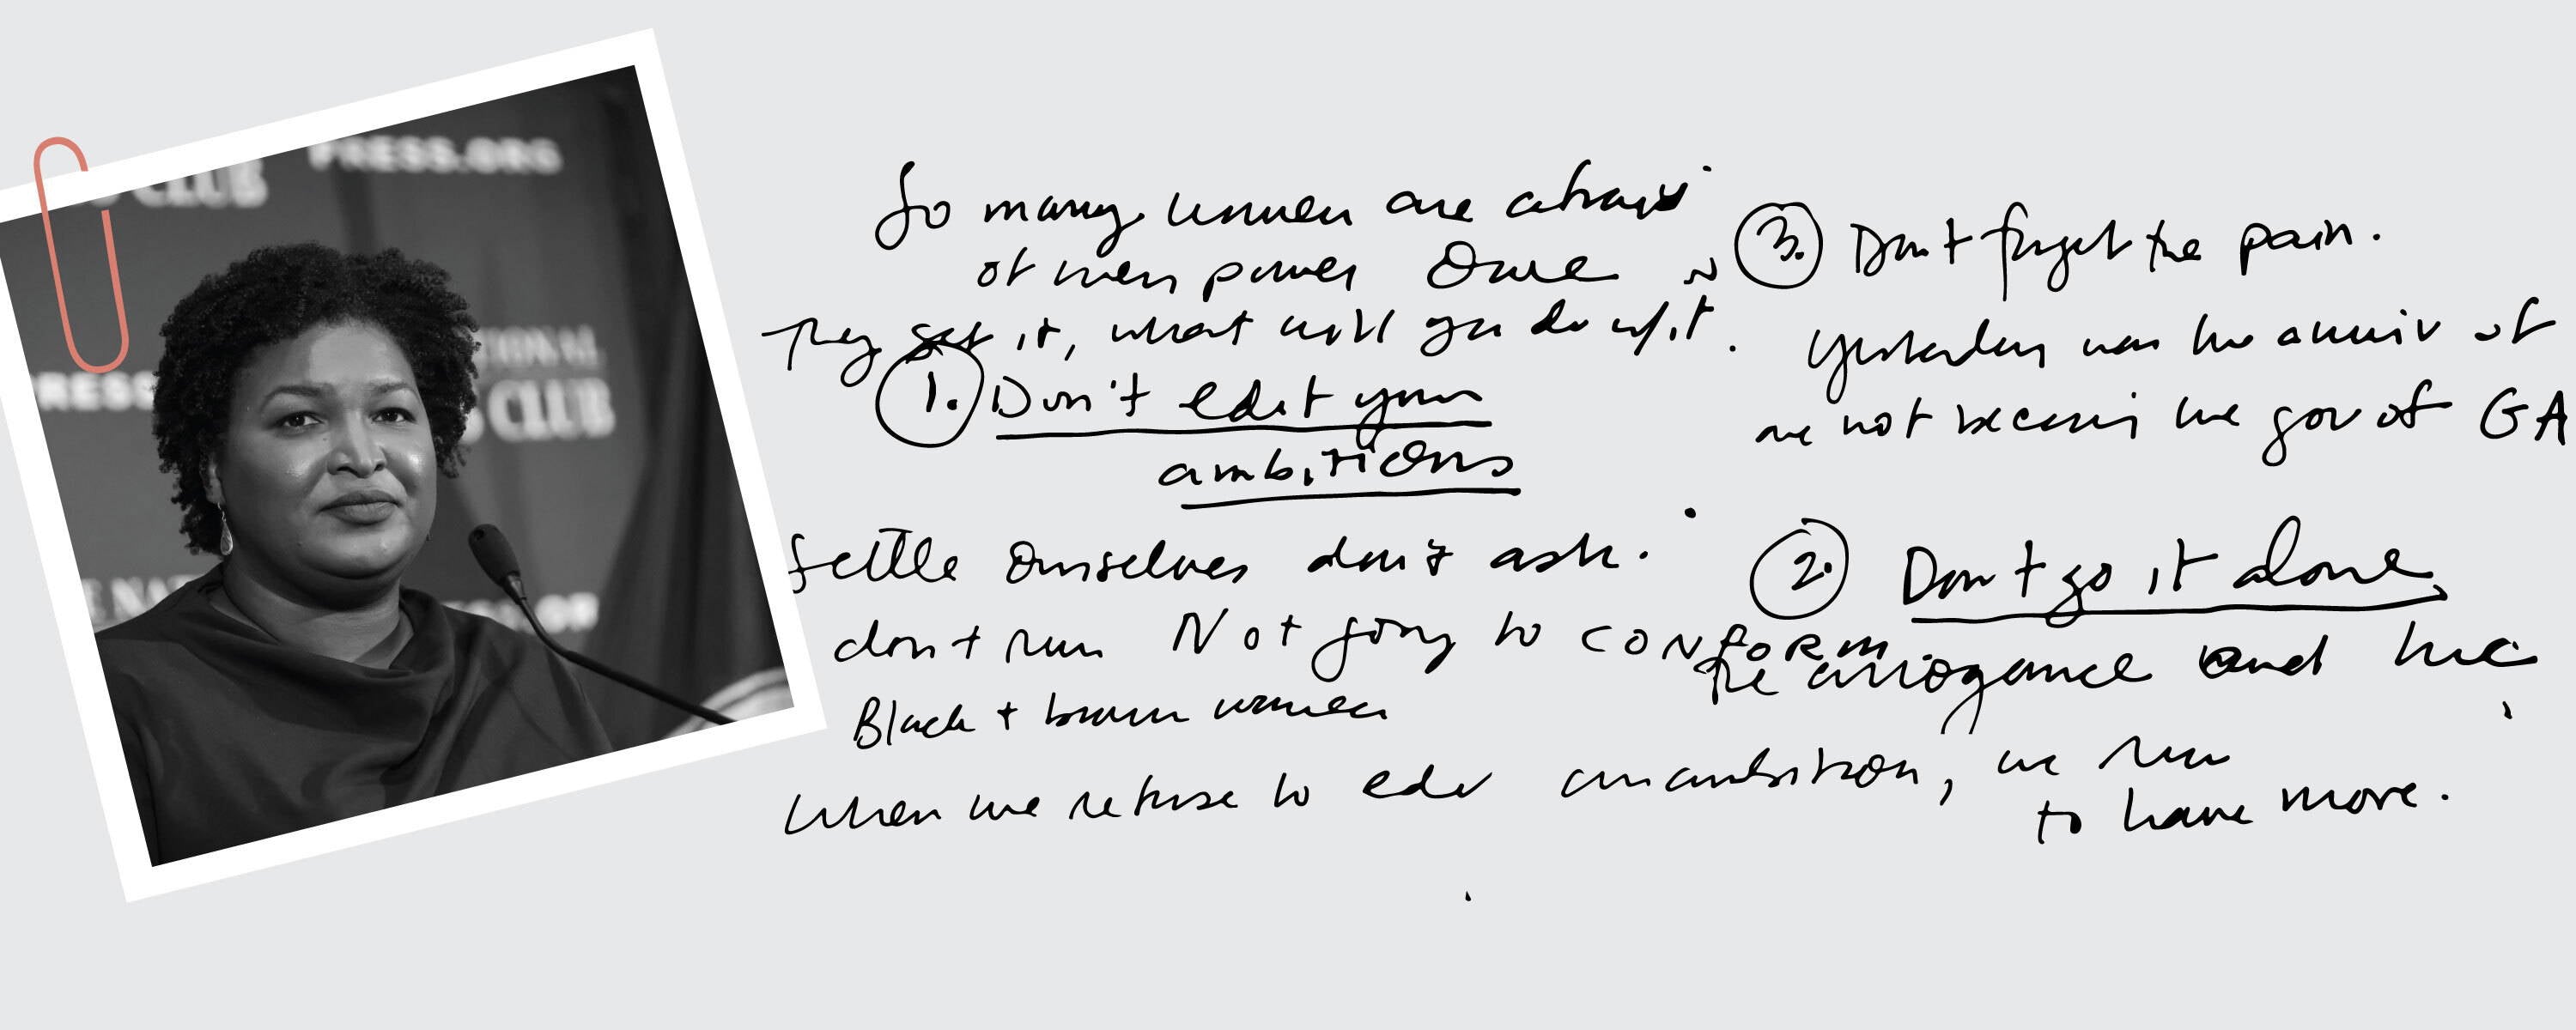 PRESS.ORG
CLUB
TIONAL
PRESS
S CLUB
E NAT
So many women are afraid
of their power Once
They get it, what will you do w/it.
1. Don't edit your
ambitions
settle ourselves don't ask.
don't run Not going to CONFORM
Black + brown women
When we refuse to edit our ambition, we run
to have more.
3. Don't forget the pain.
Yesterday was the anniv of
me not becoming the gov of GA
2. Don't go it alone
The arrogance and